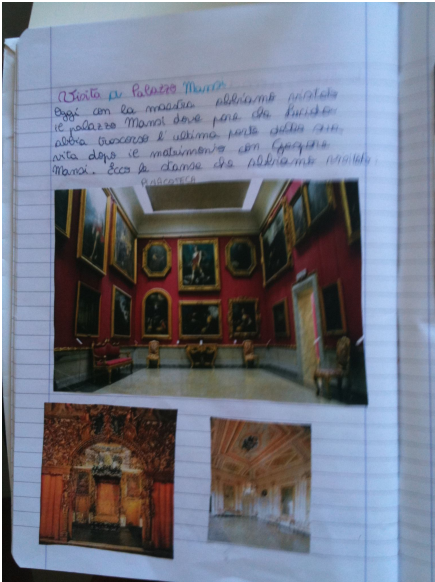 Visita a Palazzo Mansi.
Oggi con la maestra abbiamo visitato
il palazzo Mansi dove pare che Lucida
abbia trascorso l'ultima parte della sua
vita dopo il matrimonio con Gaspare
Mansi. Ecco le stanze che abbiamo visitato:
PINACOTECA